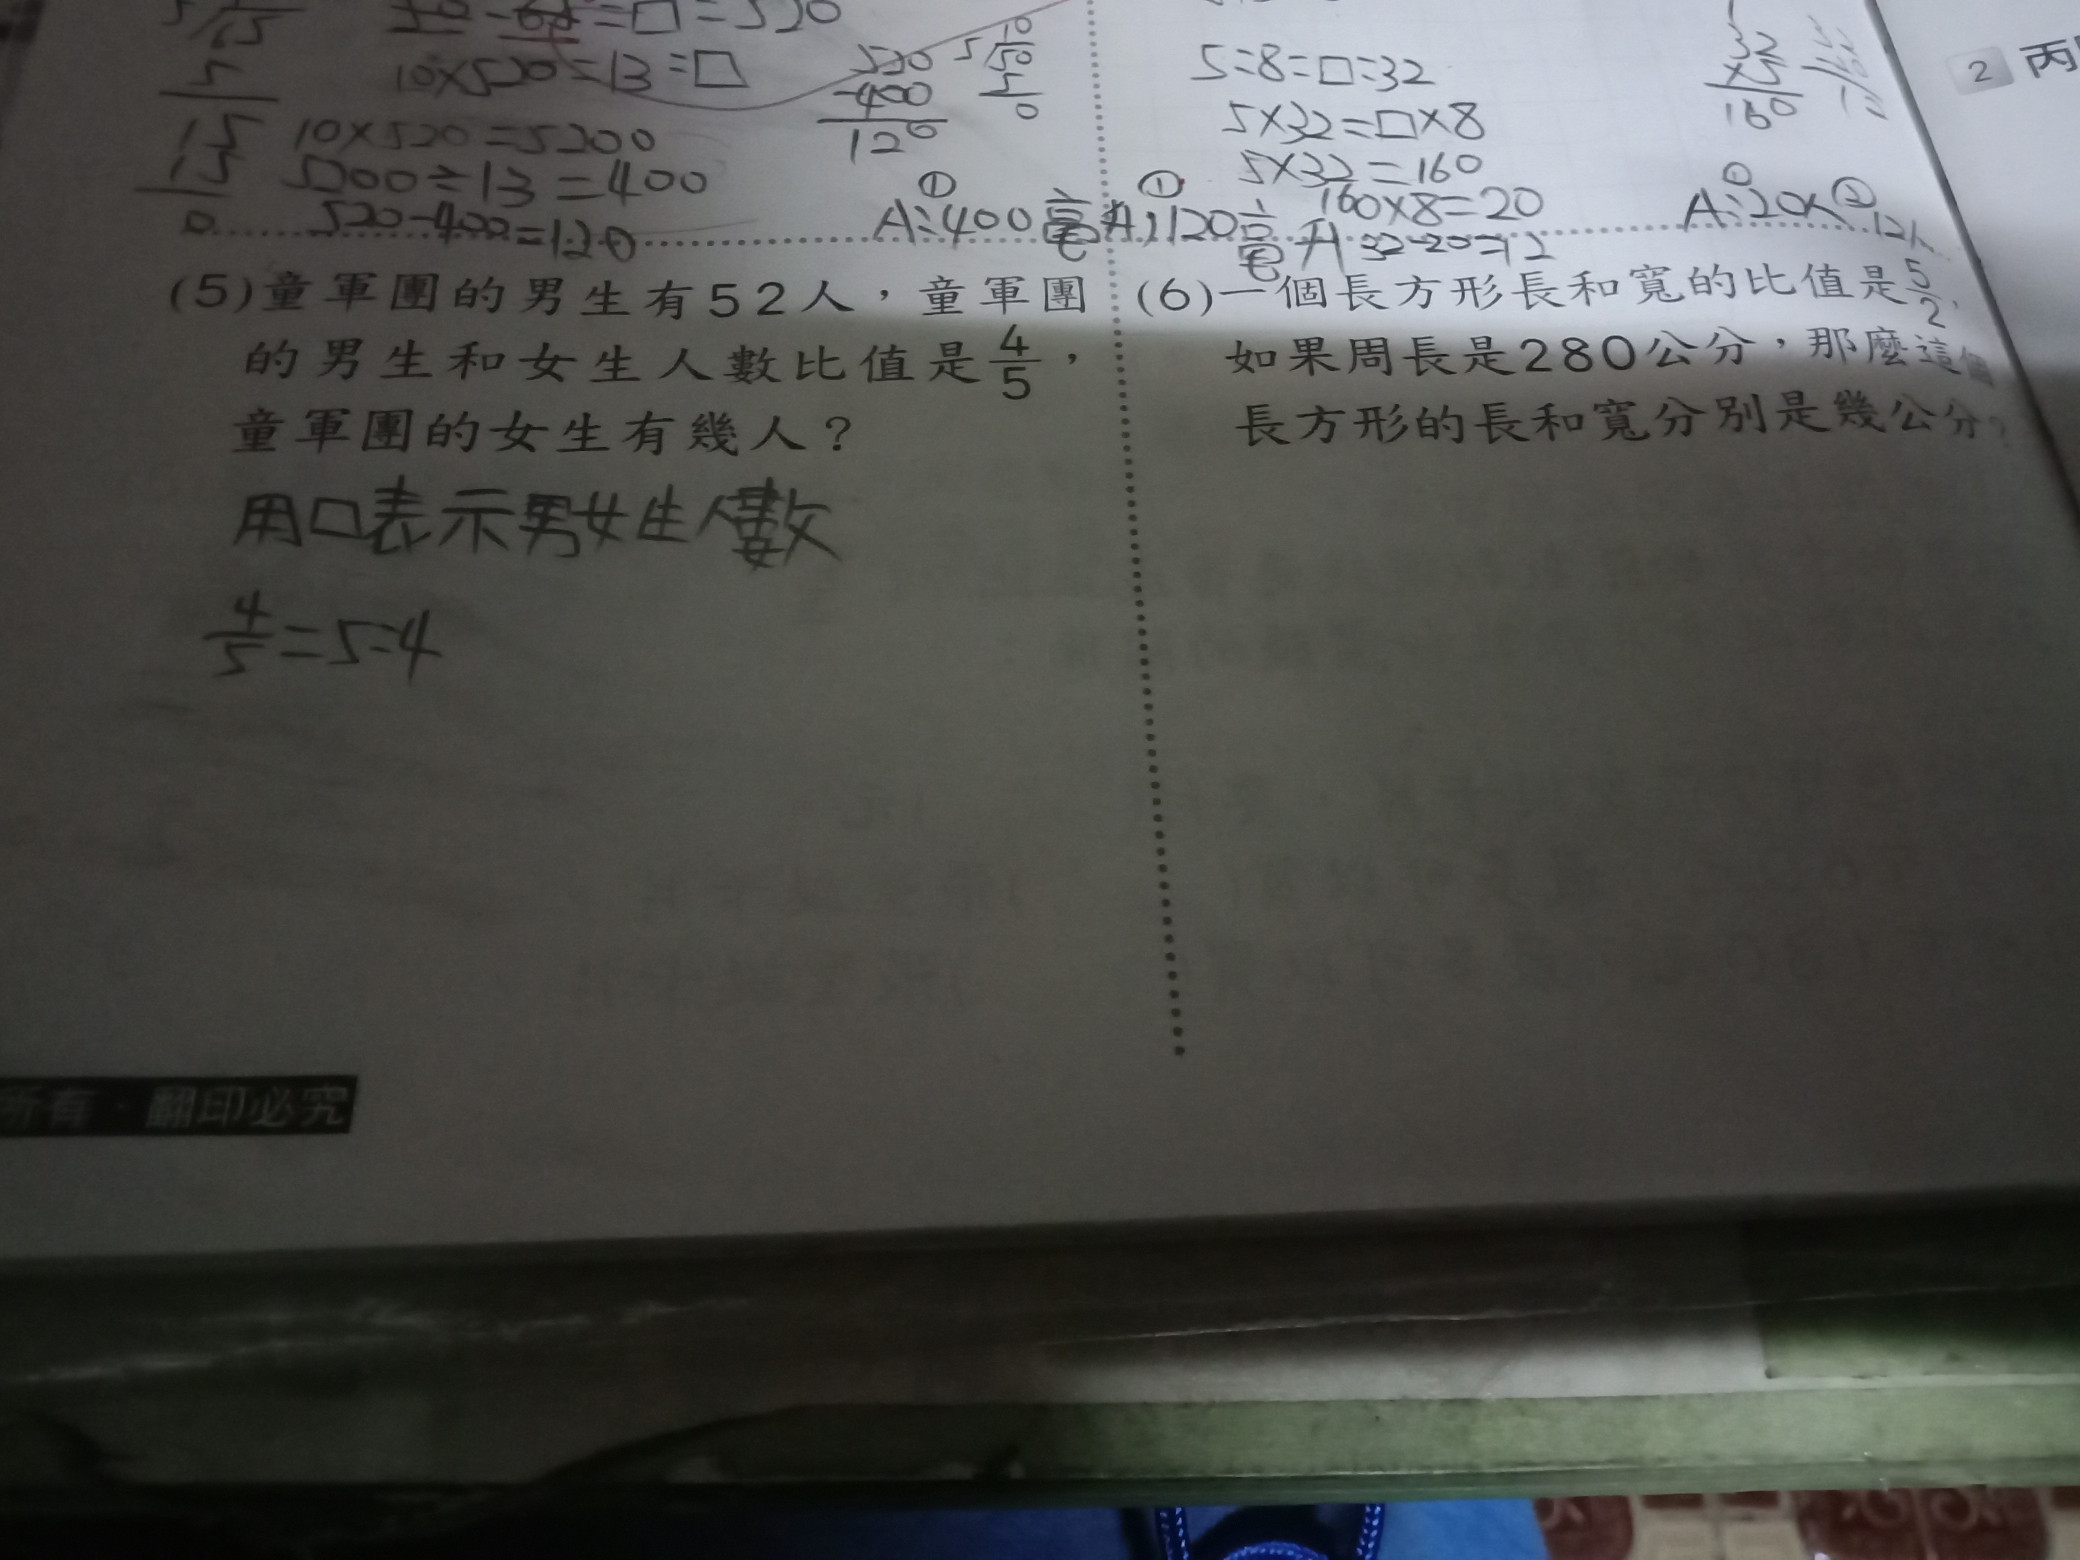 10×520=13=□
10×520=5200
5200÷13=400
520-400=120
520
-400
120
A:①400毫升②120毫升
5:8=□:32
5×32=□×8
5×32=160
160×8=20
32-20=12
32
×5
160
2 丙
(5)童軍團的男生有52人，童軍團
的男生和女生人數比值是4/5，
童軍團的女生有幾人？
用□表示男女生人數
4/5=5:4
(6)一個長方形長和寬的比值是5/2，
如果周長是280公分，那麼這個
長方形的長和寬分別是幾公分？
所有·翻印必究